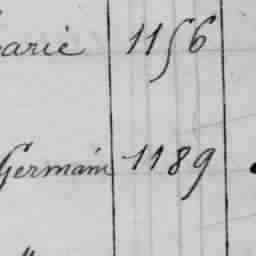 arie 1156
Germain 1189